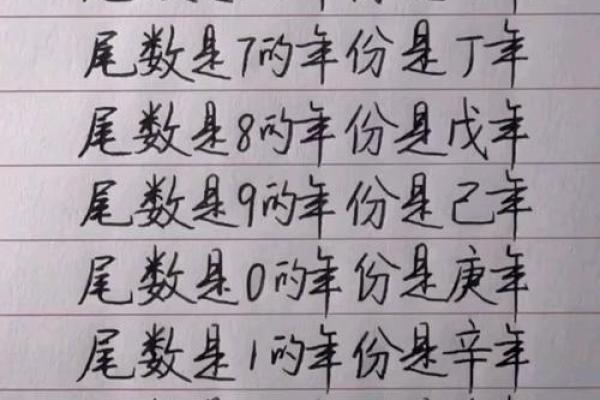 尾数是7的年份是丁年
尾数是8的年份是戊年
尾数是9的年份是己年
尾数是0的年份是庚年
尾数是1的年份是辛年